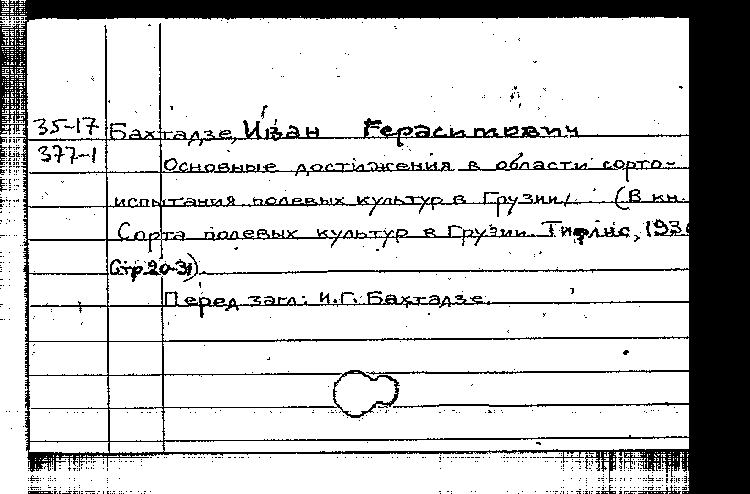 35-17 Бахтадзе, Иван Герасимович
377-1 Основные достижения в области сорто-
испытания полевых культур в Грузии. (В кн.
Сорта полевых культур в Грузии. Тифлис, 193
Стр. 20-31).
Перед загл: И.Г. Бахтадзе.